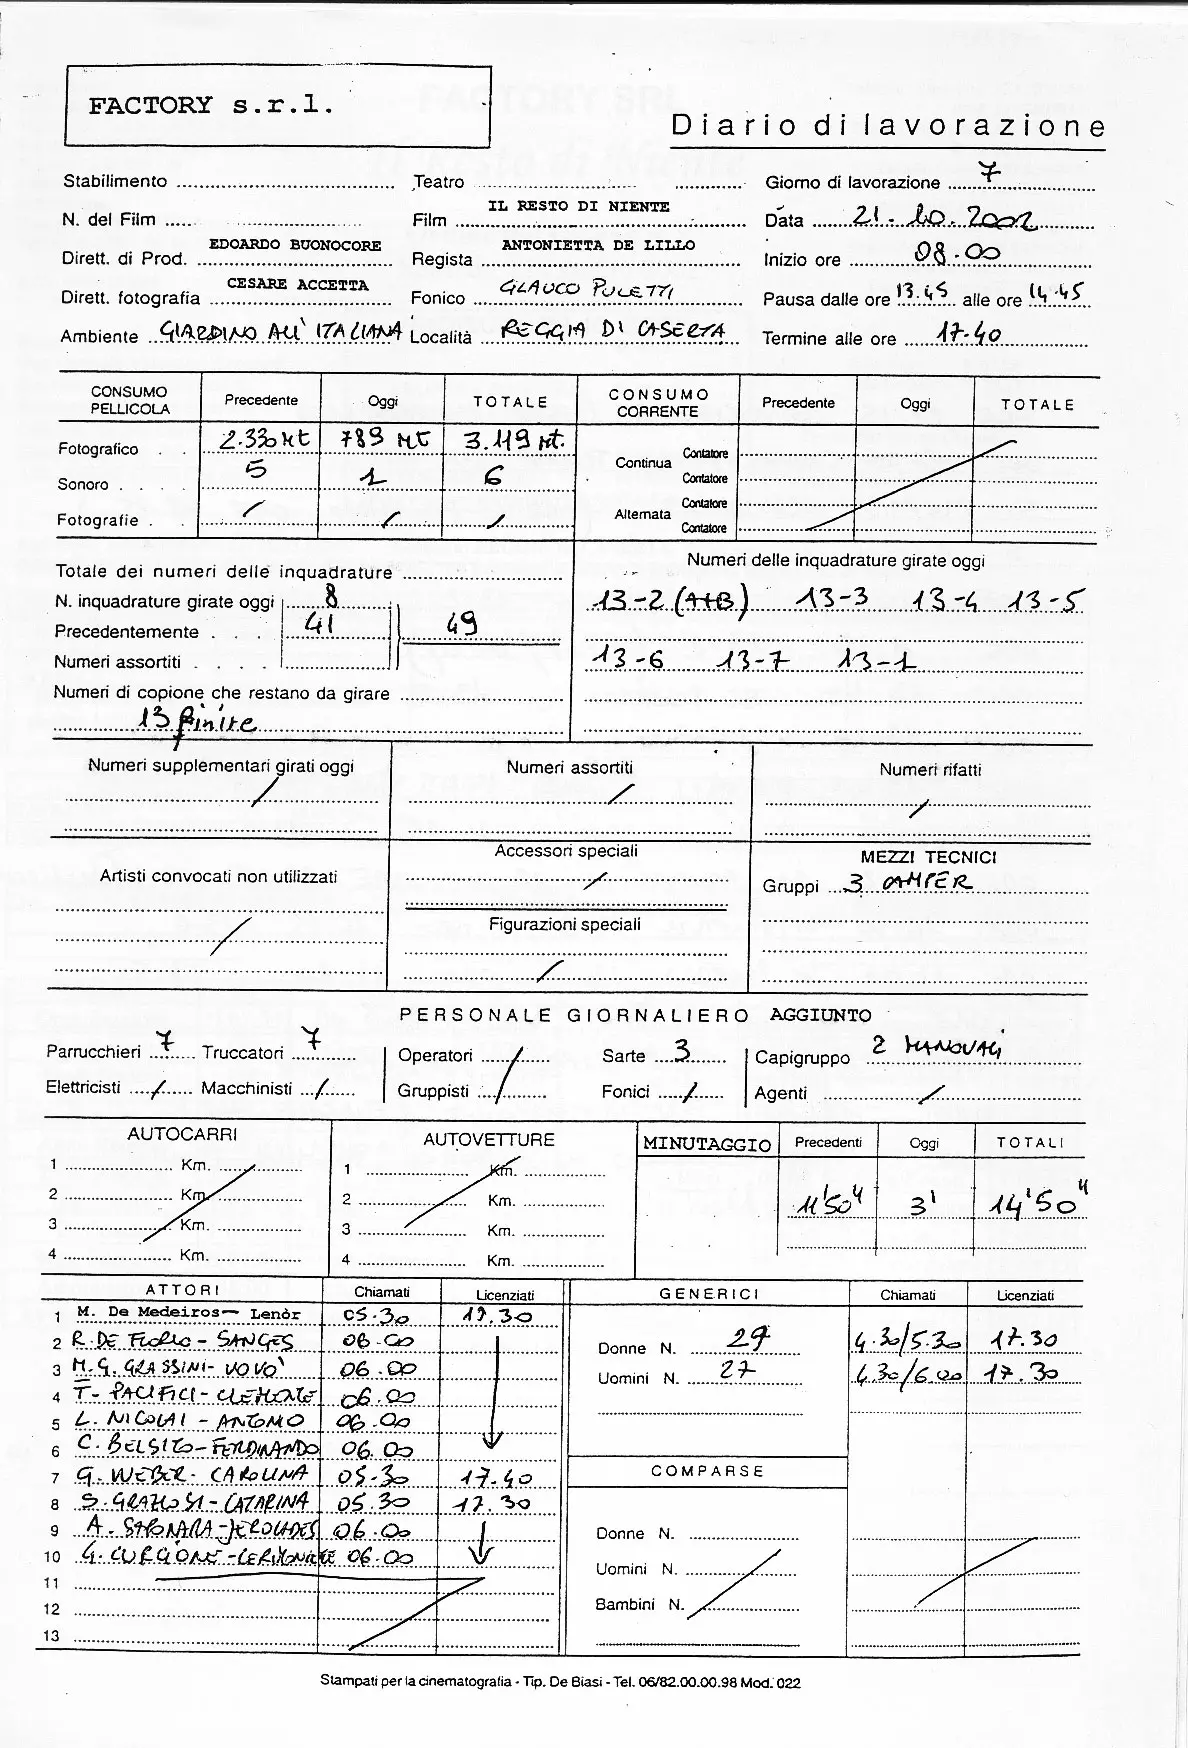 FACTORY s.r.l.
Diario di lavorazione
Stabilimento Teatro Giorno di lavorazione 7
N. del Film Film IL RESTO DI NIENTE Data 21.10.2002
Dirett. di Prod. EDOARDO BUONOCORE Regista ANTONIETTA DE LILLO Inizio ore 08.00
Dirett. fotografia CESARE ACCETTA Fonico GLAUCO PULETTI Pausa dalle ore 13.45 alle ore 14.45
Ambiente GIARDINO ALL' ITALIANA Località REGGIA DI CASERTA Termine alle ore 17.40
CONSUMO PELLICOLA Precedente Oggi TOTALE CONSUMO CORRENTE Precedente Oggi TOTALE
Fotografico 2.330 Mt 789 Mt 3.119 Mt. Continua Contatore
Sonoro 5 1 6 Contatore
Fotografie / / / Alternata Contatore
Contatore
Totale dei numeri delle inquadrature Numeri delle inquadrature girate oggi
N. inquadrature girate oggi 8 13-2 (A+B) 13-3 13-4 13-5
Precedentemente 41 49
Numeri assortiti 13-6 13-7 13-1
Numeri di copione che restano da girare
13 finite
Numeri supplementari girati oggi Numeri assortiti Numeri rifatti
/ / /
Artisti convocati non utilizzati Accessori speciali MEZZI TECNICI
/ Gruppi 3 CAMPER
Figurazioni speciali
/ /
PERSONALE GIORNALIERO AGGIUNTO
Parrucchieri 7 Truccatori 7 Operatori / Sarte 3 Capigruppo 2 MANOVALI
Elettricisti / Macchinisti / Gruppisti / Fonici / Agenti /
AUTOCARRI AUTOVETTURE MINUTAGGIO Precedenti Oggi TOTALI
1 Km. 1 Km.
2 Km. 2 Km. 11'50" 3' 14'50"
3 Km. 3 Km.
4 Km. 4 Km.
ATTORI Chiamati Licenziati GENERICI Chiamati Licenziati
1 M. De Medeiros— Lenòr 05.30 17.30
2 R. DE FLORIO - SANGES 06.00 Donne N. 29 4.30/5.30 17.30
3 M.G. GRASSINI - VOVO' 06.00 Uomini N. 27 4.30/6.00 17.30
4 T. PACIFICI - CLEMENTE 06.00
5 L. NICOLAI - ANTONIO 06.00
6 C. BELSITO - FERDINANDO 06.00
7 G. WEBER - CAROLINA 05.30 17.40 COMPARSE
8 S. GRAZIOSI - CATARINA 05.30 17.30
9 A. 06.00 Donne N.
10 G. CURCIONE 06.00 Uomini N.
11
12 Bambini N.
13
Stampati per la cinematografia - Tip. De Biasi - Tel. 06/82.00.00.98 Mod. 022